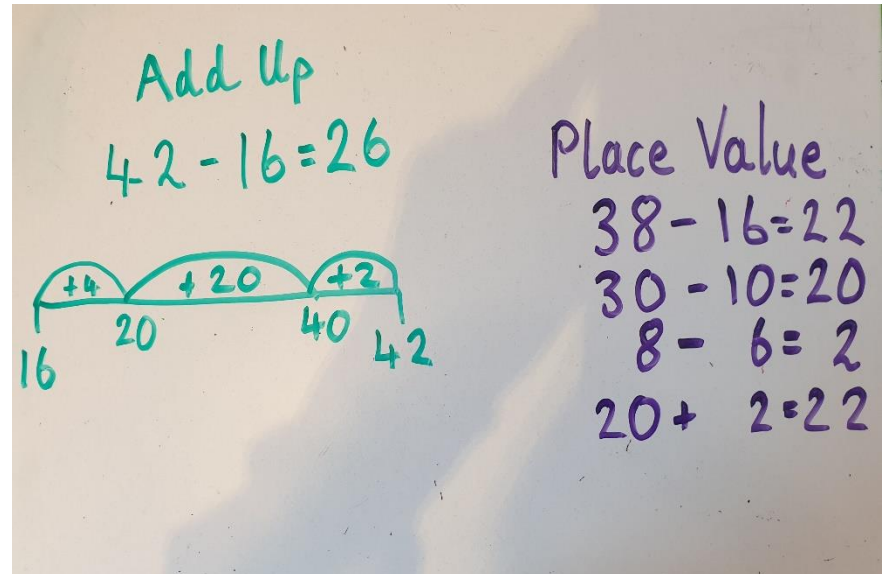 Add Up
42-16=26
+4 +20 +2
16 20 40 42
Place Value
38-16=22
30-10=20
8- 6= 2
20+ 2=22